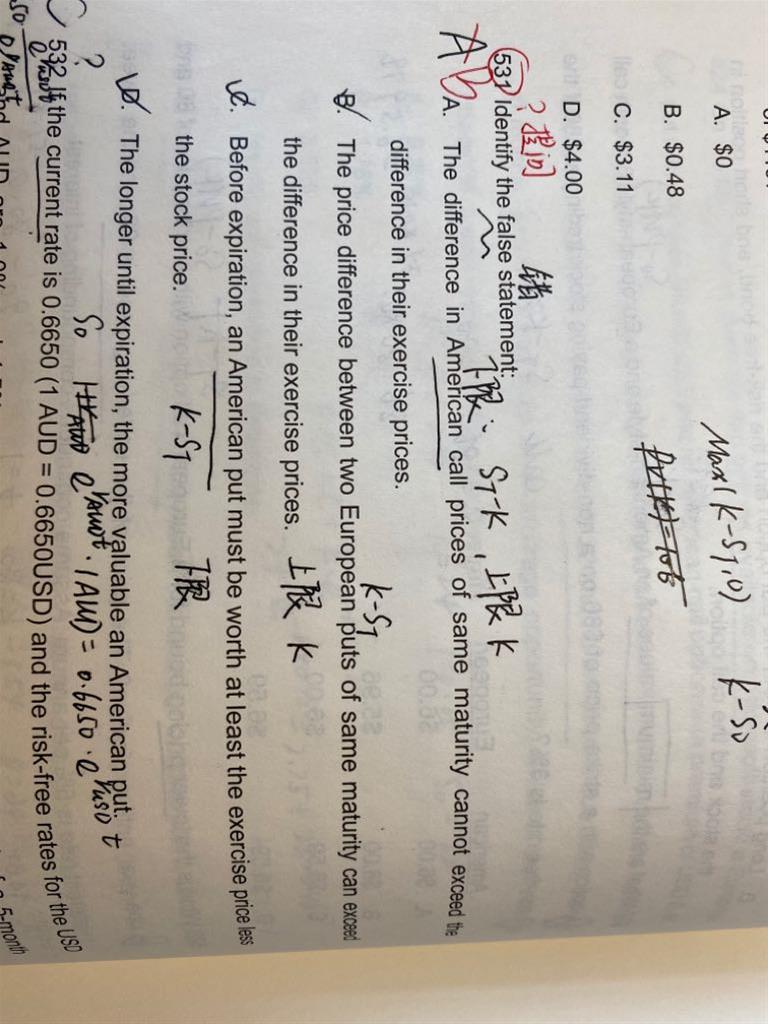 A. $0
B. $0.48
C. $3.11
D. $4.00
Max(K-S_T, 0)
K-S0
PV(K)=
? 提问
错
531 Identify the false statement:
下限: S_T-K, 上限 K
A
A. The difference in American call prices of same maturity cannot exceed the
difference in their exercise prices.
K-S_T
B. The price difference between two European puts of same maturity can exceed
the difference in their exercise prices. 上限 K
C. Before expiration, an American put must be worth at least the exercise price less
the stock price. K-S_T 下限
D. The longer until expiration, the more valuable an American put.
S0
· 1AUD = 0.6650 · e
?
532 If the current rate is 0.6650 (1 AUD = 0.6650USD) and the risk-free rates for the USD
5-month